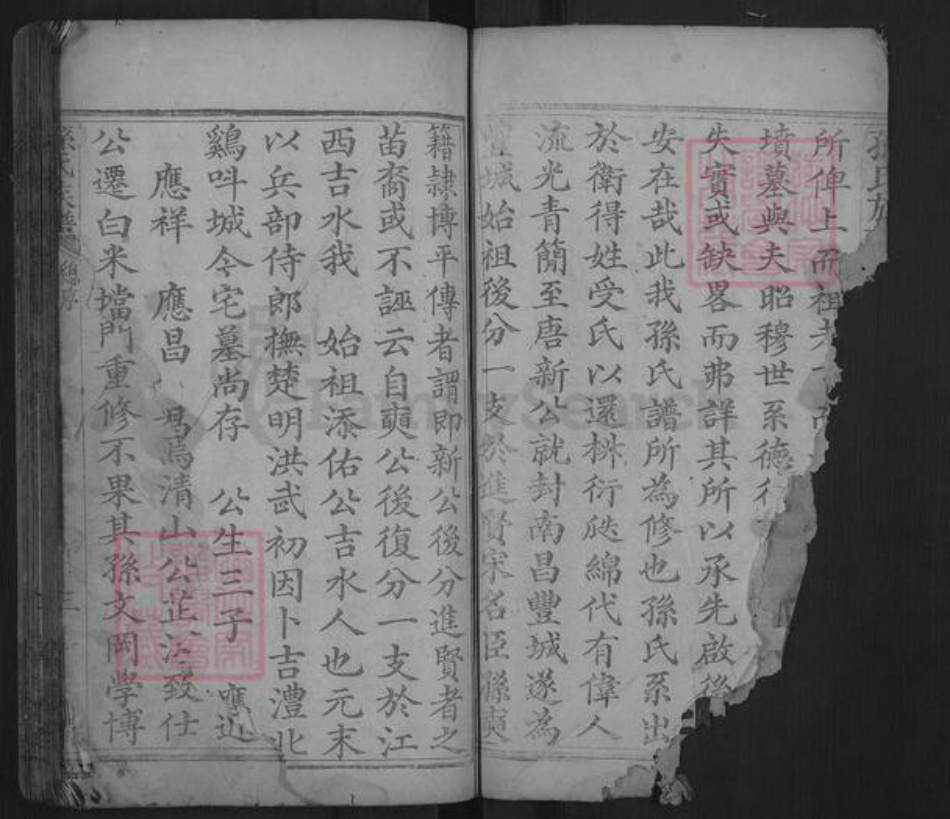 孫氏族
所俾上而祖
墳墓與夫昭穆世系德行
失實或缺畧而弗詳其所以承先啟後
安在哉此我孫氏譜所為修也孫氏系出
於衛得姓受氏以還椒衍瓞綿代有偉人
流光青簡至唐新公就封南昌豐城遂為
豐城始祖後分一支於進賢宋名臣孫奭
籍隷博平傳者謂即新公後分進賢者之
苗裔或不誣云自奭公後復分一支於江
西吉水我 始祖添佑公吉水人也元末
以兵部侍郎撫楚明洪武初因卜吉澧北
鷄呌城今宅墓尚存 公生三子 應近
應祥 應昌 焉清山公芷江致仕
公遷白米壋門重修不果其孫文岡學博
孫氏族譜 三
FamilySearch